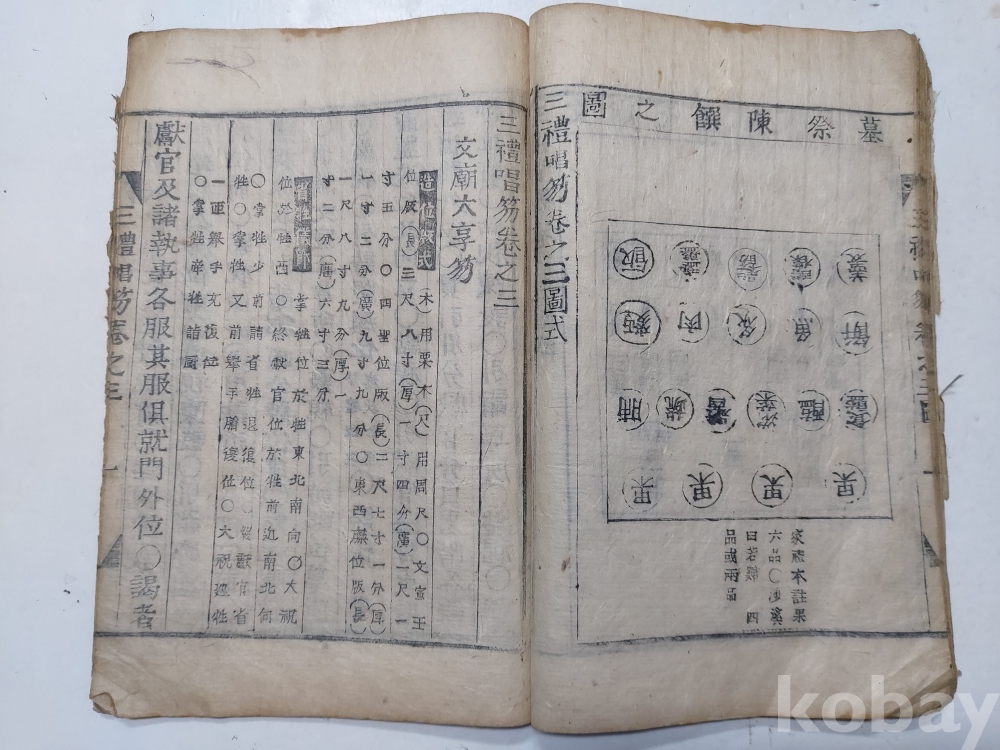 墓祭陳饌之圖
羹 匙筯 盞盤 飯
餠 魚 炙 肉 麪
食醢 醯 沈菜 蔬 脯
果 果 果 果
家禮本註果
六品○沙溪
曰若難 四
品或兩品
三禮唱笏卷之三圖式
三禮唱笏卷之三
文廟大享笏
位版式 (木)用栗木(尺)用周尺○文宣王
位版(長)三尺八寸(厚)一寸四分(廣)一尺一
寸五分○四聖位版(長)二尺七寸一分(厚)
一寸二分(廣)九寸九分○東西廡位版(長)
一尺八寸九分(厚)一
寸二分(廣)六寸三分
掌牲位於牲東北南向○大祝
位於牲西○終獻官位於牲前近南北向
○掌牲少前請省牲退復位○終獻官省
牲○掌牲又前擧手腯復位○大祝廵牲
一匝擧手充復位
○掌牲牽牲詣廚
獻官及諸執事各服其服俱就門外位○謁者
三禮唱笏卷之三 一
kobay